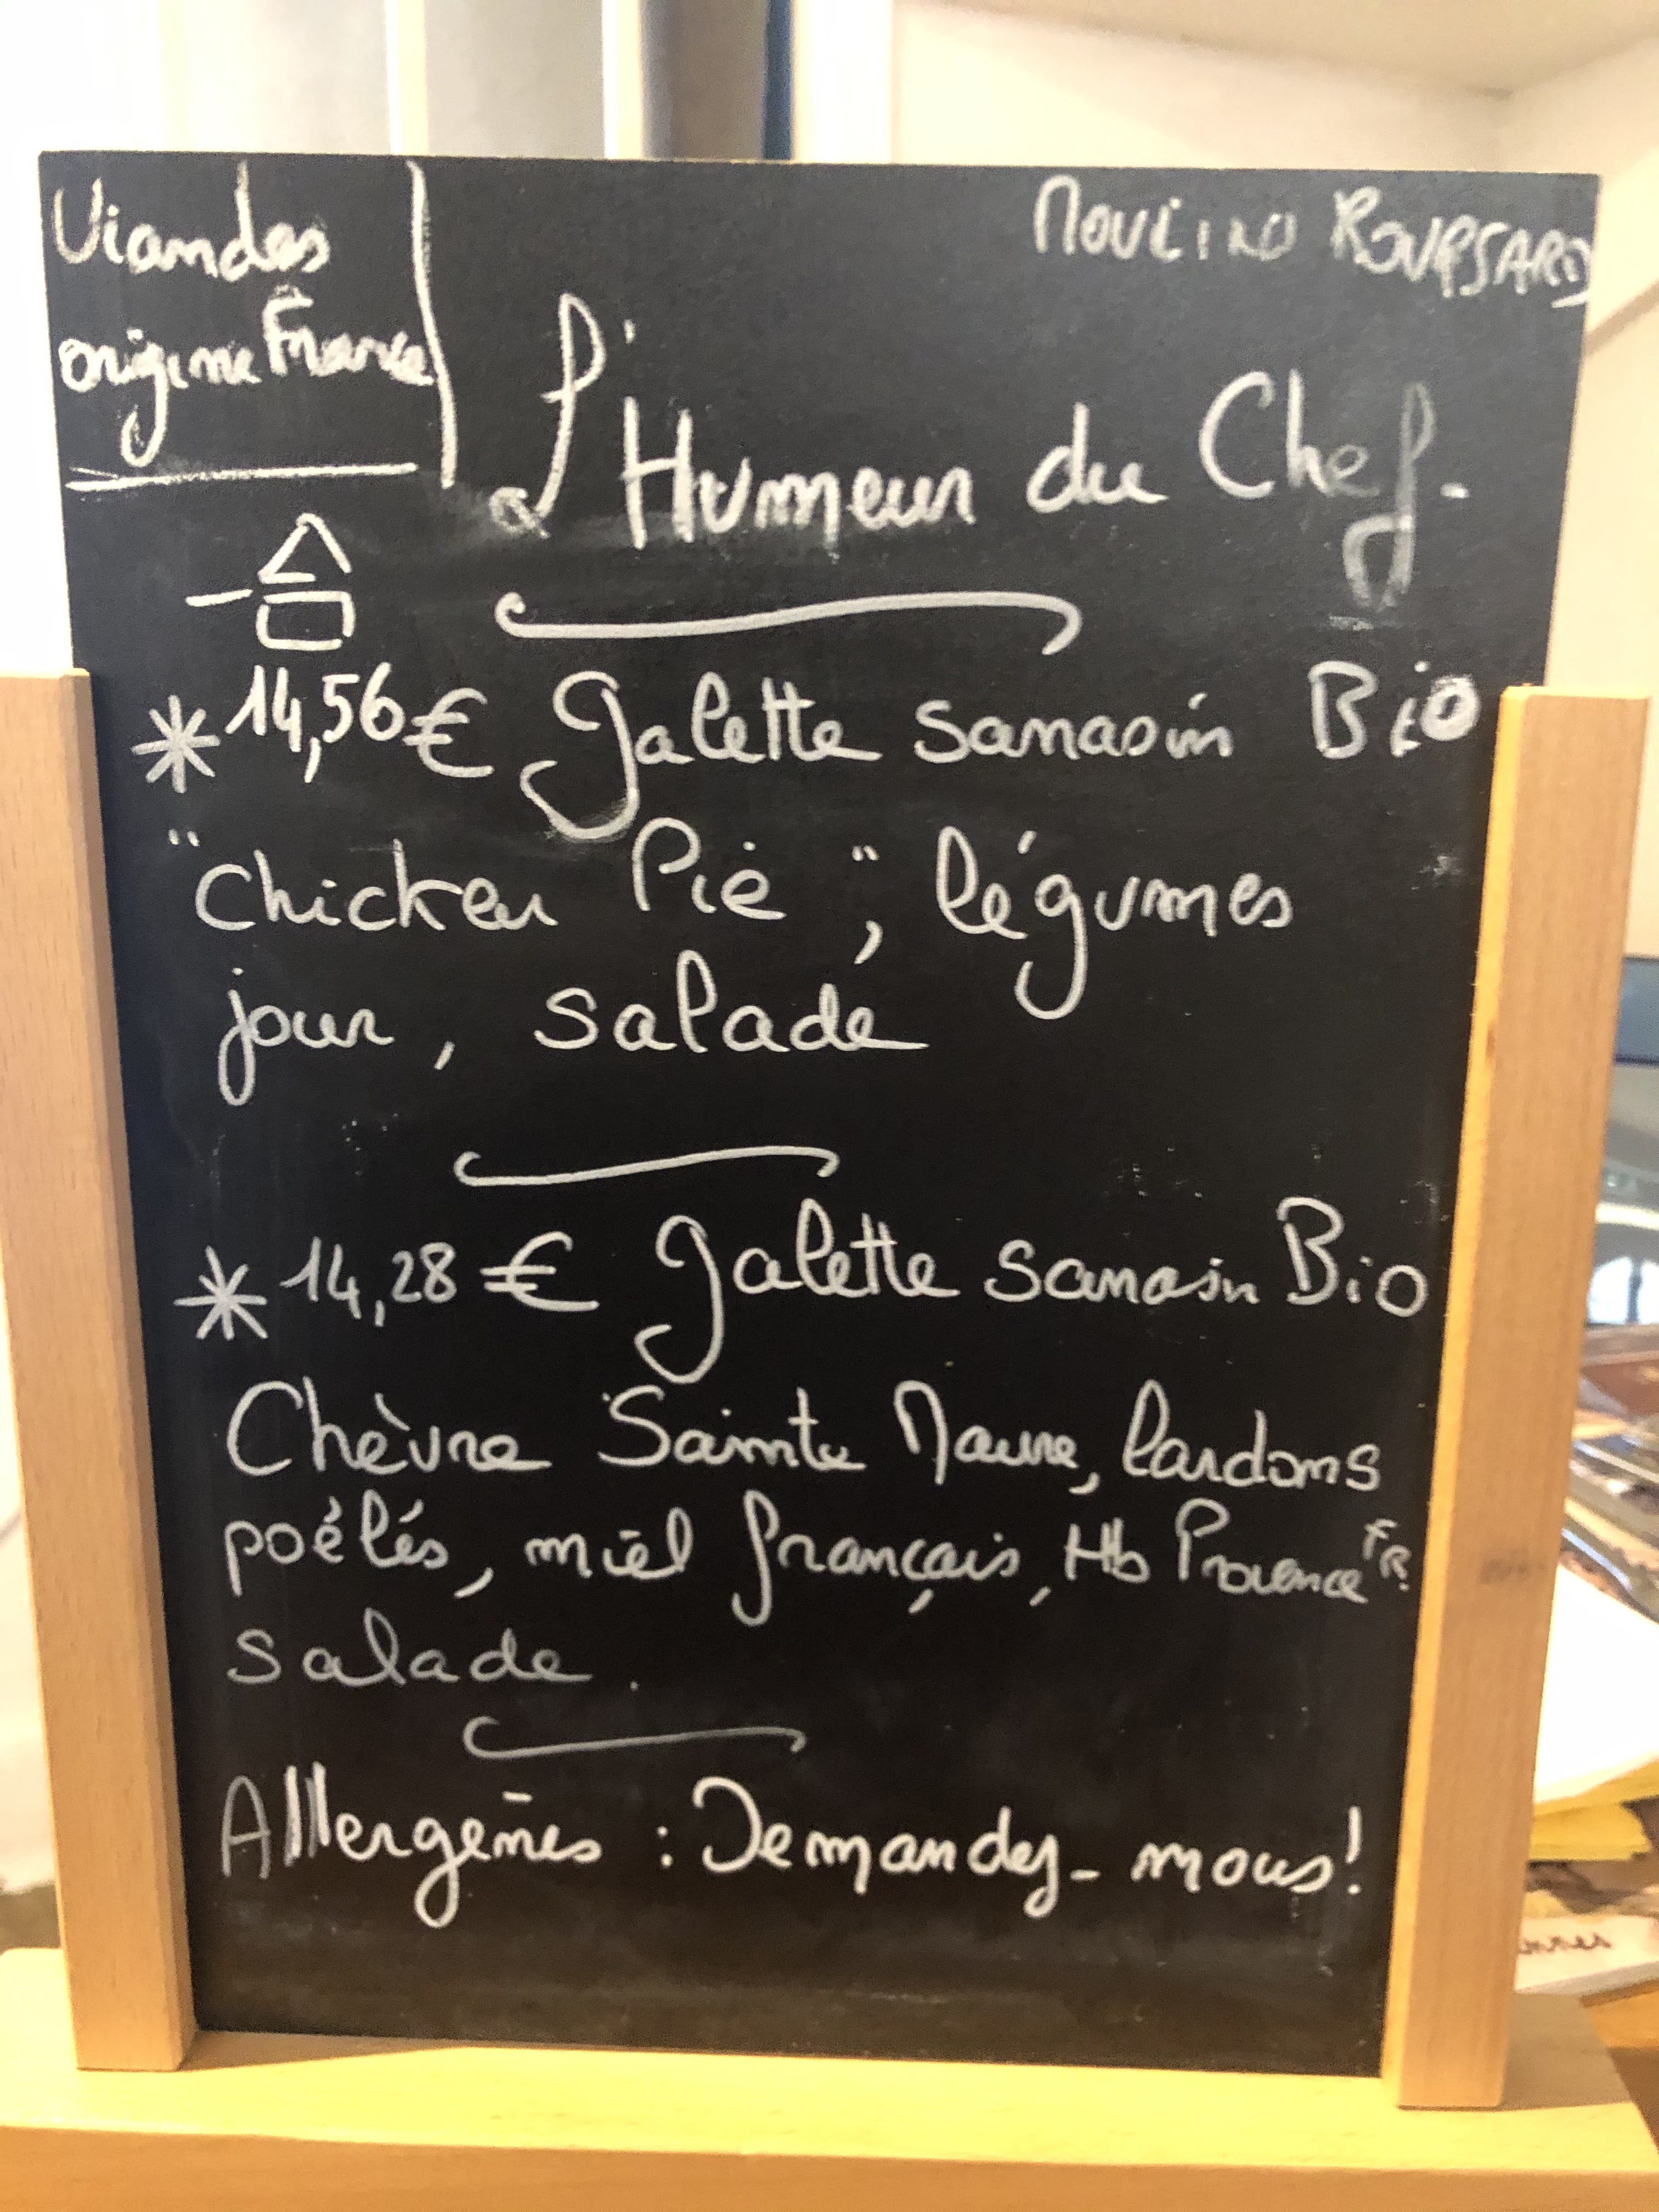 Viandes
origine France
L'Humeur du Chef.
* 14,56€ Galette sarrasin Bio
"Chicken Pie", légumes
jour, salade
* 14,28€ Galette sarrasin Bio
Chèvre Sainte Maure, lardons
poêlés, miel français, Hb Provence FR.
salade.
Allergènes : Demandez-nous!